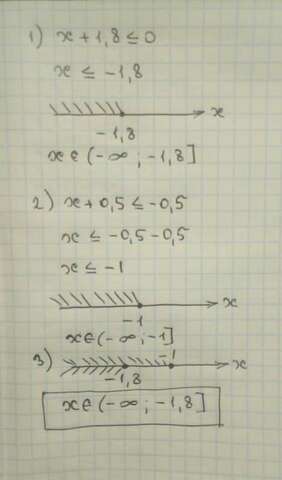 1) x + 1,8 ≤ 0
x ≤ -1,8
x
-1,8
x ∈ (-∞ ; -1,8]
2) x + 0,5 ≤ -0,5
x ≤ -0,5 - 0,5
x ≤ -1
x
-1
x ∈ (-∞ ; -1]
3) -1 x
-1,8
x ∈ (-∞ ; -1,8]